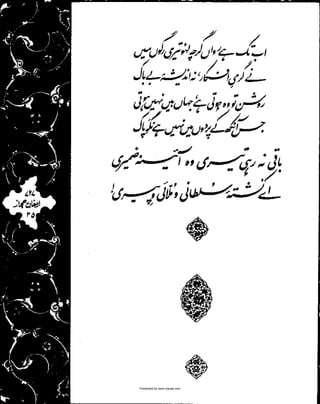 اب تک ہے رواں گرچہ لہو تیری رگوں میں
نے گرمیِ افکار، نہ اندیشۂ بے باک
روشن تو وہ ہوتی ہے، جہاں بیں نہیں ہوتی
جس آنکھ کے پردوں میں نہیں ہے نگہِ پاک
باقی نہ رہی تیری وہ آئینہ ضمیری
اے کشتۂ سلطانی و ملّائی و پیری!
۷۲۷
ارمغان حجاز
۳۵
Presented by www.ziaraat.com